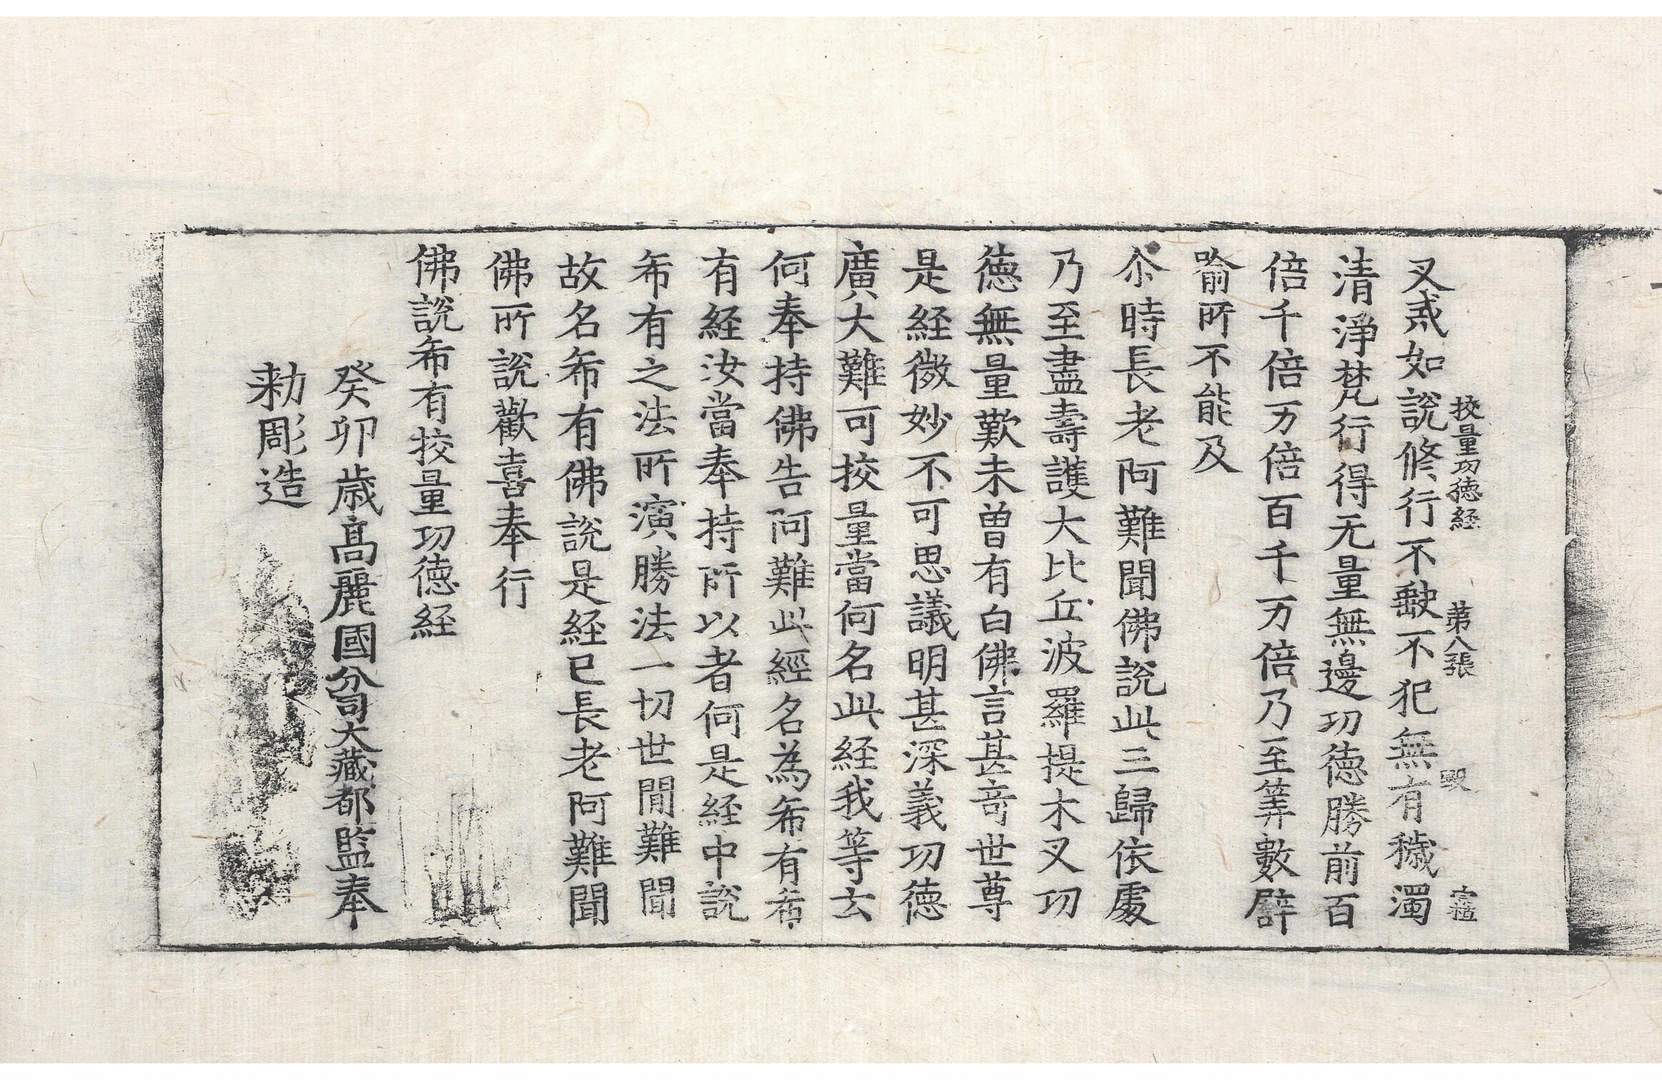 校量功德経 第八張 毀
叉戒如說修行不缺不犯無有穢濁
清淨梵行得无量無邊功徳勝前百
倍千倍万倍百千万倍乃至筭數譬
喻所不能及
尒時長老阿難聞佛說此三歸依處
乃至盡壽護大比丘波羅提木叉功
徳無量歎未曾有白佛言甚竒世尊
是経微妙不可思議明甚深義功徳
廣大難可挍量當何名此経我等云
何奉持佛告阿難此經名為希有希
有経汝當奉持所以者何是経中說
希有之法所演勝法一切世間難聞
故名希有佛說是経已長老阿難聞
佛所說歡喜奉行
佛說希有挍量功徳経
癸卯歳髙麗國分司大藏都監奉
勑彫造